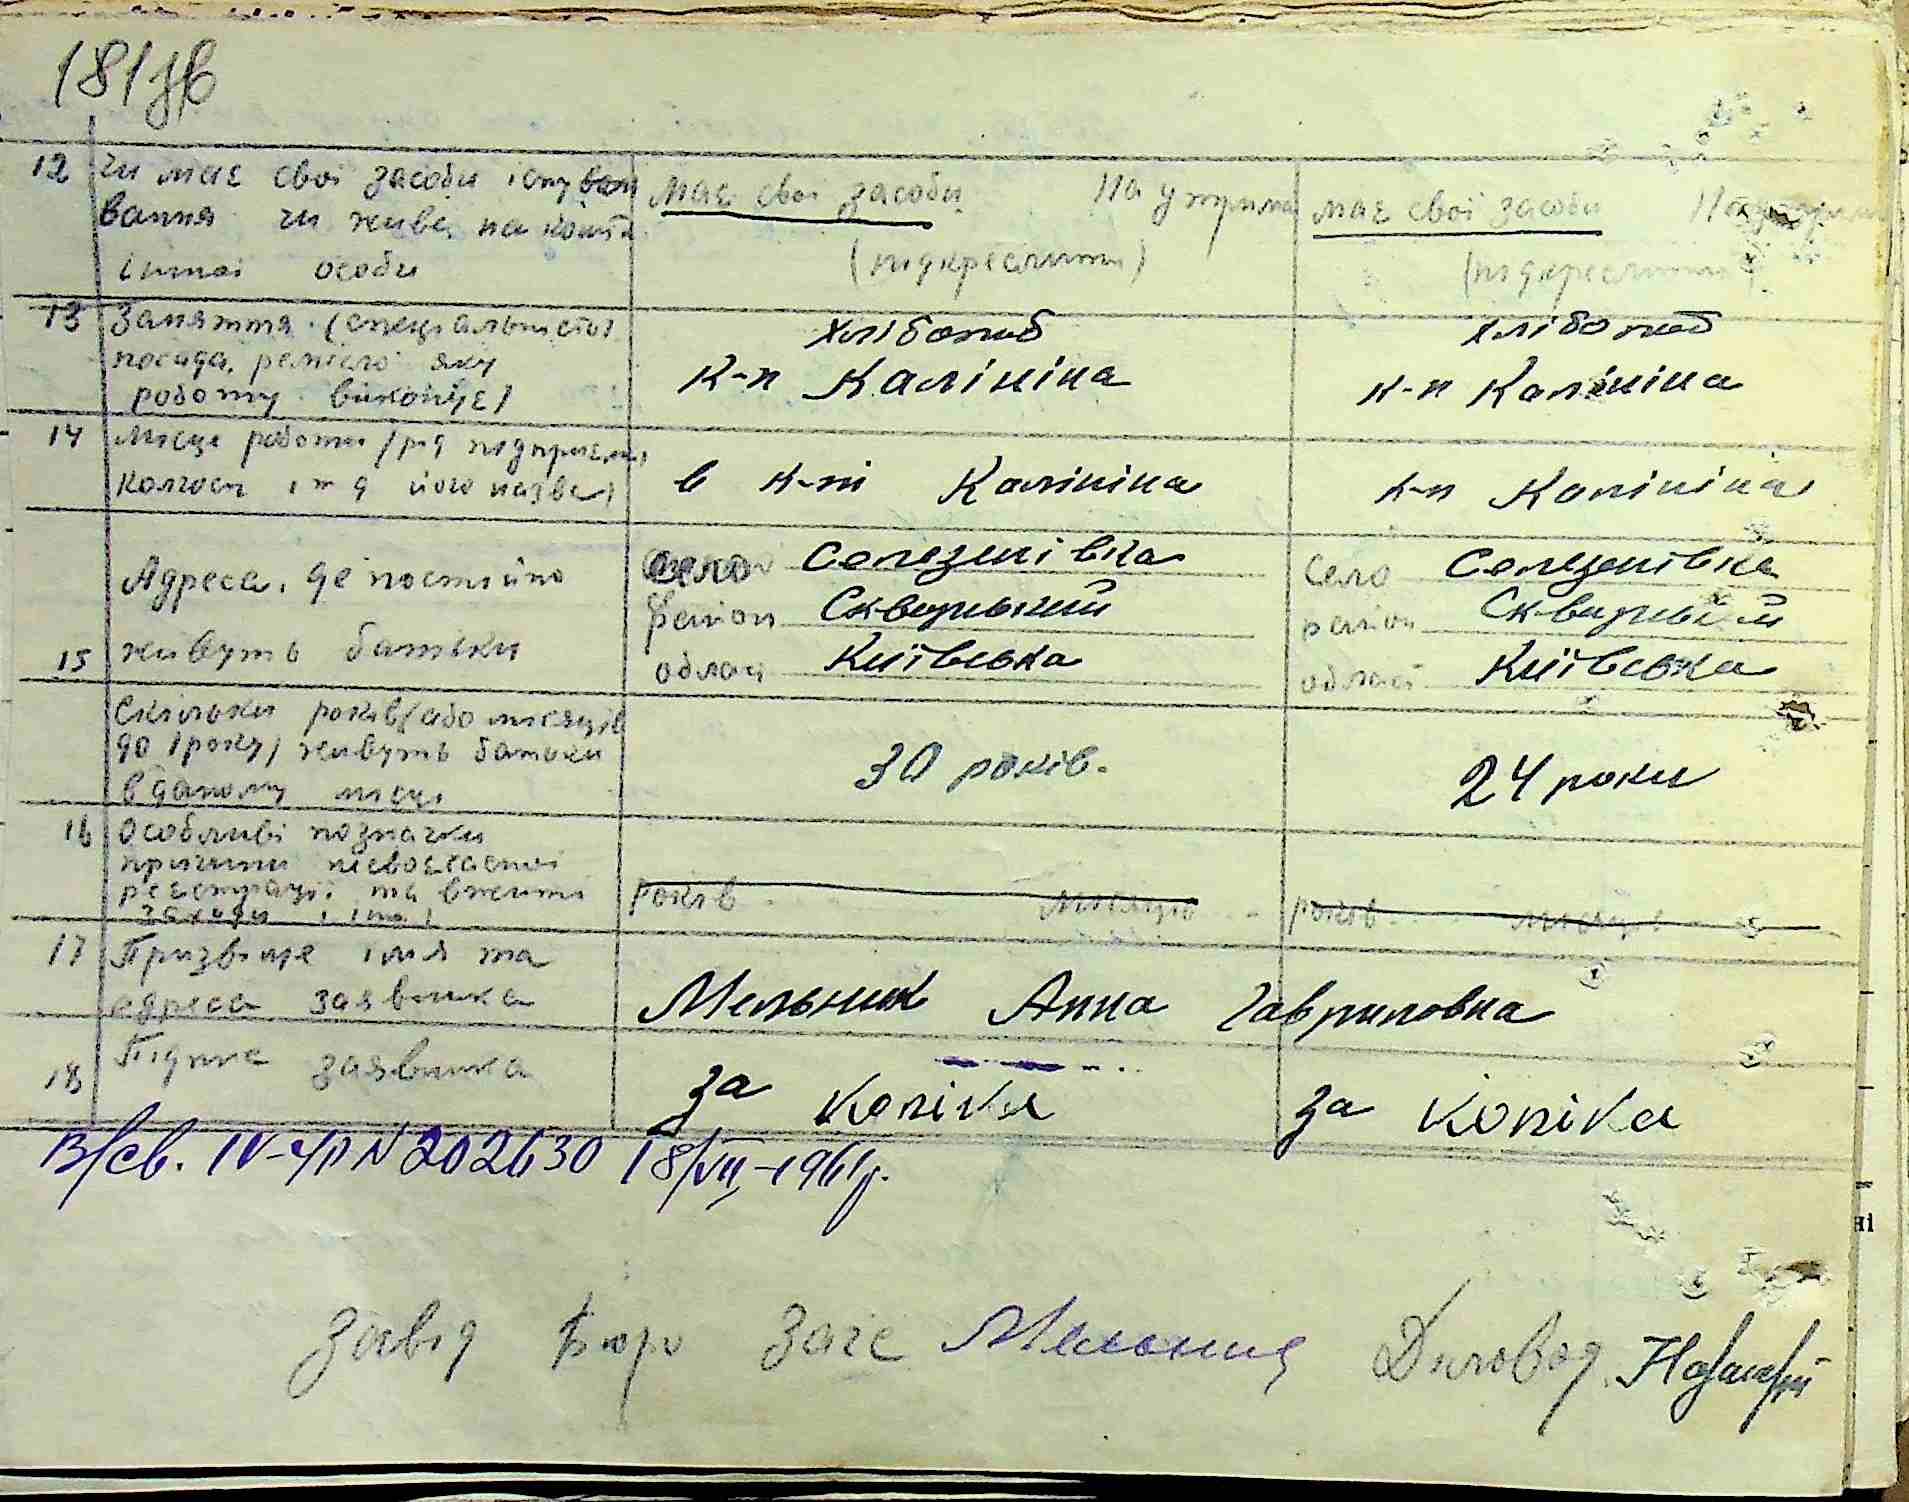 181зв
12 Чи має свої засоби існуван
вання чи живе на кошти
іншої особи
має свої засоби На утрима
(підкреслити)
має свої засоби
(підкреслити)
13 Заняття (спеціальність)
посада, ремесло яку
роботу виконує)
хлібороб
к-п Калініна
хлібороб
к-п Калініна
14 Місце роботи /рід підприєм,
колгосп і т д його назва)
в к-пі Калініна
к-п Калініна
15 Адреса, де постійно
живуть батьки
село Селезенівка
район Сквирський
област Київська
село Селезенівка
район Сквирський
област Київська
Скільки років (або місяців
до 1року) живуть батьки
в даному місці
30 років.
24 роки
16 Особливі позначки
причини несвоєчасної
реєстрації та вжиті
заходи і інш.)
років місяців
років місяців
17 Призвіще імя та
адреса заявника
Мельник Анна Гавриловна
18 Підпис заявника
за Копіка
за Копіка
В/св. IV-УР N 202630 18/VII-1961р.
Завід Бюро Загс Мельник Діловод.